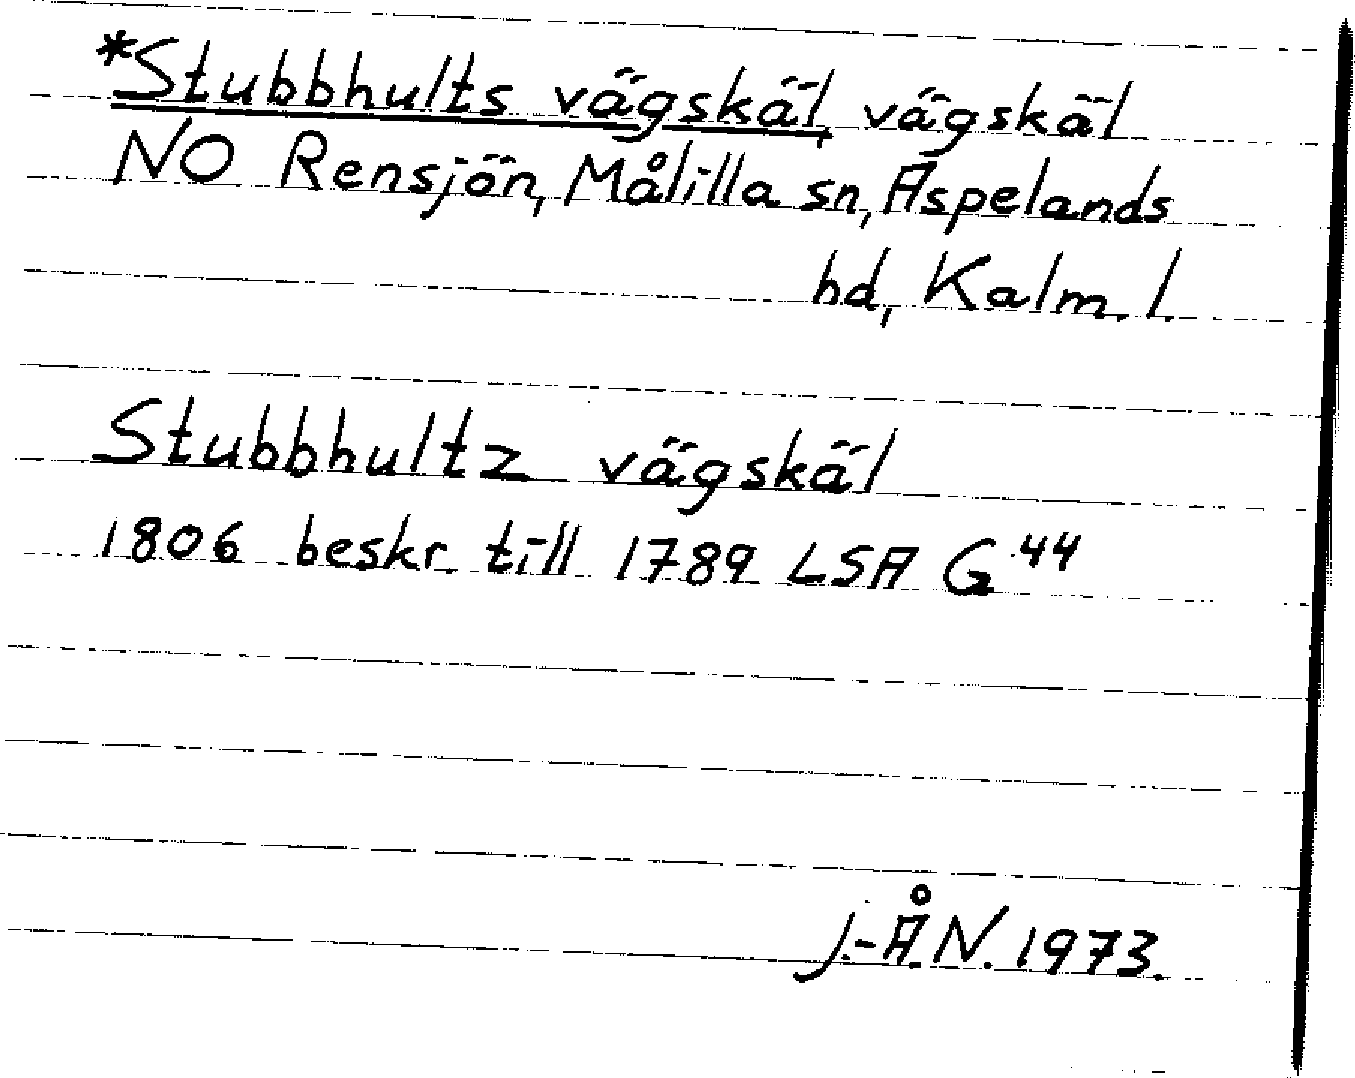 *Stubbhults vägskäl, vägskäl
NO Rensjön, Målilla sn, Aspelands
hd, Kalm. l.
Stubbhultz vägskäl
1806 beskr. till 1789 LSA G 44
J.-Å.N. 1973.